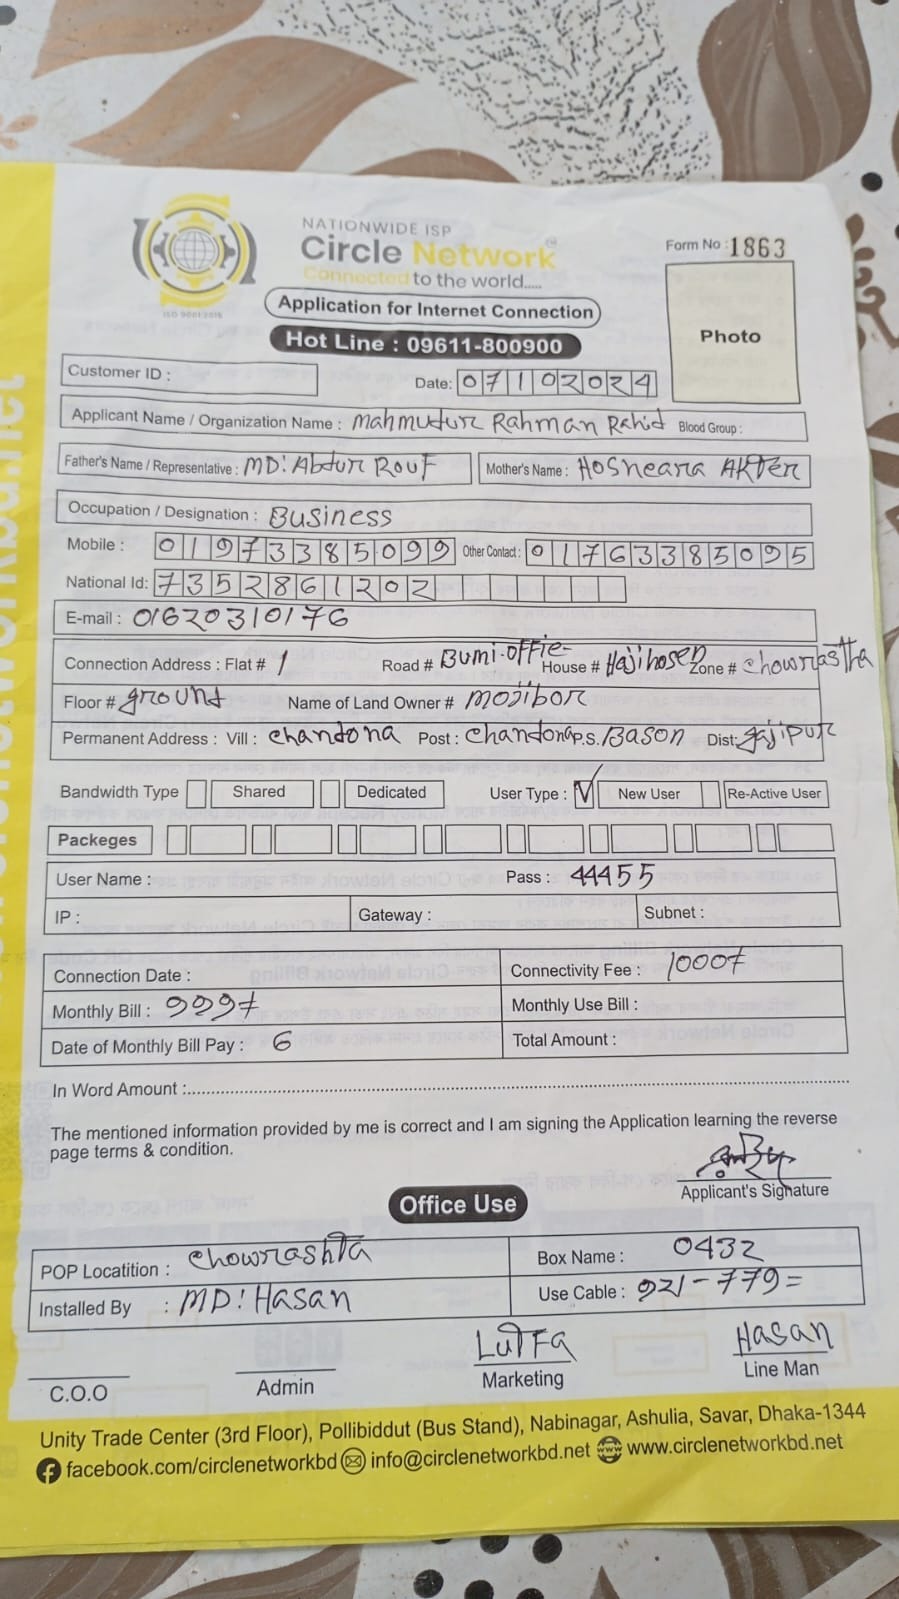 NATIONWIDE ISP
Circle Network
Connected to the world.....
Form No : 1863
Application for Internet Connection
Hot Line : 09611-800900
Photo
ISO 9001:2015
Customer ID :
Date: 07102024
Applicant Name / Organization Name : Mahmudur Rahman Rahid Blood Group :
Father's Name / Representative : MD: Abdur Rouf Mother's Name : Hosneara Akter
Occupation / Designation : Business
Mobile : 01973385099 Other Contact : 01763385095
National Id: 7352861202
E-mail : 01620310176
Connection Address : Flat # 1 Road # Bumi-offie- House # Hajihosen Zone # chowrastha
Floor # ground Name of Land Owner # mojibor
Permanent Address : Vill : chandona Post : chandona P.S. Bason Dist: gajipur
Bandwidth Type Shared Dedicated User Type : New User Re-Active User
Packeges
User Name : Pass : 44455
IP : Gateway : Subnet :
Connection Date : Connectivity Fee : 1000৳
Monthly Bill : Monthly Use Bill :
Date of Monthly Bill Pay : 6 Total Amount :
In Word Amount :
The mentioned information provided by me is correct and I am signing the Application learning the reverse
page terms & condition.
Applicant's Signature
Office Use
POP Locatition : chowrashta Box Name : 0432
Installed By : MD: Hasan Use Cable : 921-779=
LuTFa Hasan
C.O.O Admin Marketing Line Man
Unity Trade Center (3rd Floor), Pollibiddut (Bus Stand), Nabinagar, Ashulia, Savar, Dhaka-1344
facebook.com/circlenetworkbd info@circlenetworkbd.net www.circlenetworkbd.net